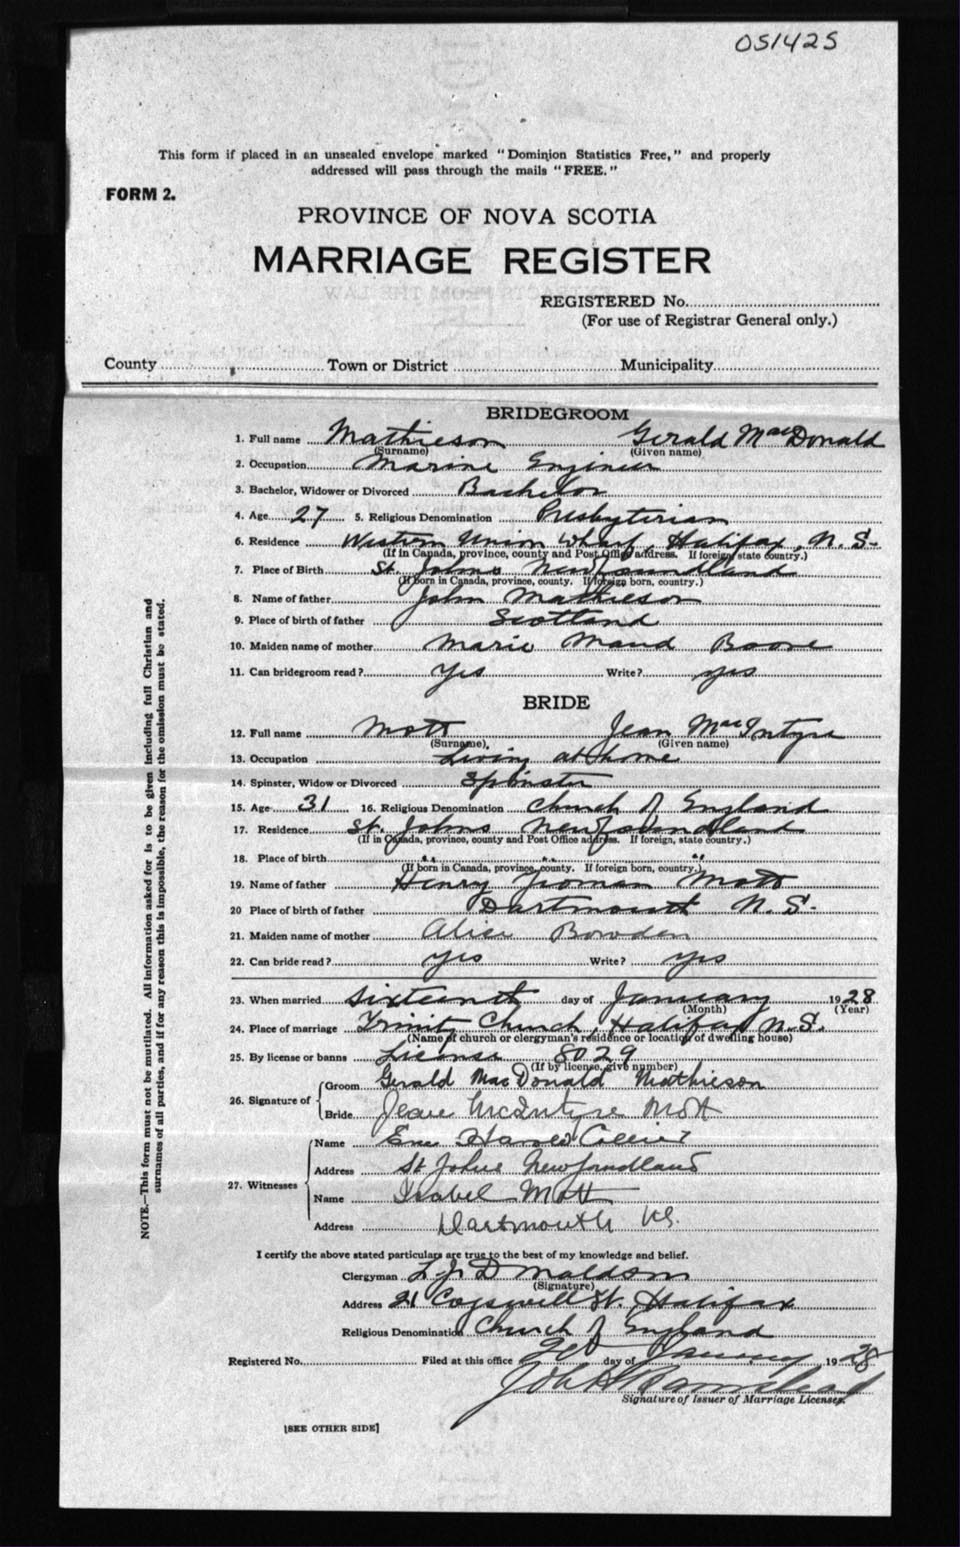 051425
This form if placed in an unsealed envelope marked "Dominion Statistics Free," and properly
addressed will pass through the mails "FREE."
FORM 2.
PROVINCE OF NOVA SCOTIA
MARRIAGE REGISTER
REGISTERED No.
(For use of Registrar General only.)
County Town or District Municipality
BRIDEGROOM
1. Full name Mathieson Gerald MacDonald
(Surname) (Given name)
2. Occupation Marine Engineer
3. Bachelor, Widower or Divorced Bachelor
4. Age 27 5. Religious Denomination Presbyterian
6. Residence Western Union Wharf, Halifax, N.S.
(If in Canada, province, county and Post Office address. If foreign state country.)
7. Place of Birth St. Johns Newfoundland
(If born in Canada, province, county. If foreign born, country.)
8. Name of father John Mathieson
9. Place of birth of father Scotland
10. Maiden name of mother Marie Maud Boone
11. Can bridegroom read? Yes Write? yes
BRIDE
12. Full name Mott Jean MacIntyre
(Surname) (Given name)
13. Occupation Living at home
14. Spinster, Widow or Divorced Spinster
15. Age 31 16. Religious Denomination Church of England
17. Residence St. Johns Newfoundland
(If in Canada, province, county and Post Office address. If foreign, state country.)
18. Place of birth " " "
(If born in Canada, province, county. If foreign born, country.)
19. Name of father Henry Yeoman Mott
20 Place of birth of father Dartmouth N.S.
21. Maiden name of mother Alice Bowden
22. Can bride read? yes Write? yes
23. When married Sixteenth day of January 1928
(Month) (Year)
24. Place of marriage Trinity Church, Halifax N.S.
(Name of church or clergyman's residence or location of dwelling house)
25. By license or banns License 8029
(If by license, give number)
26. Signature of
Groom Gerald MacDonald Mathieson
Bride Jean McIntyre Mott
27. Witnesses
Name Harold Collier
Address St Johns Newfoundland
Name Isabel Mott
Address Dartmouth NS.
I certify the above stated particulars are true to the best of my knowledge and belief.
Clergyman L J Donaldson
(Signature)
Address 21 Cogswell St. Halifax
Religious Denomination Church of England
Registered No. Filed at this office day of January 1928
Signature of Issuer of Marriage Licenses.
[SEE OTHER SIDE]
NOTE.—This form must not be mutilated. All information asked for is to be given including full Christian and
surnames of all parties, and if for any reason this is impossible, the reason for the omission must be stated.